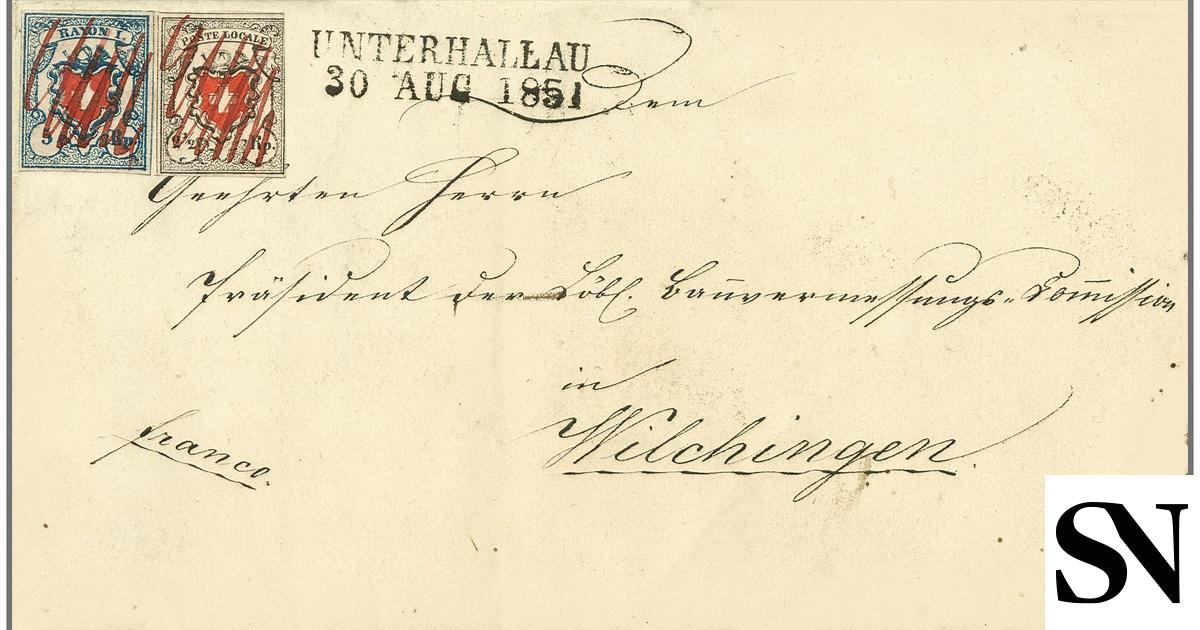 RAYON I.
5 Rp.
POSTE LOCALE
2½ Rp.
UNTERHALLAU
30 AUG 1851
Dem
Geehrten Herrn
Präsident der Löbl. Bauvermessungs-Com̄ission
in
Wilchingen
franco.
SN